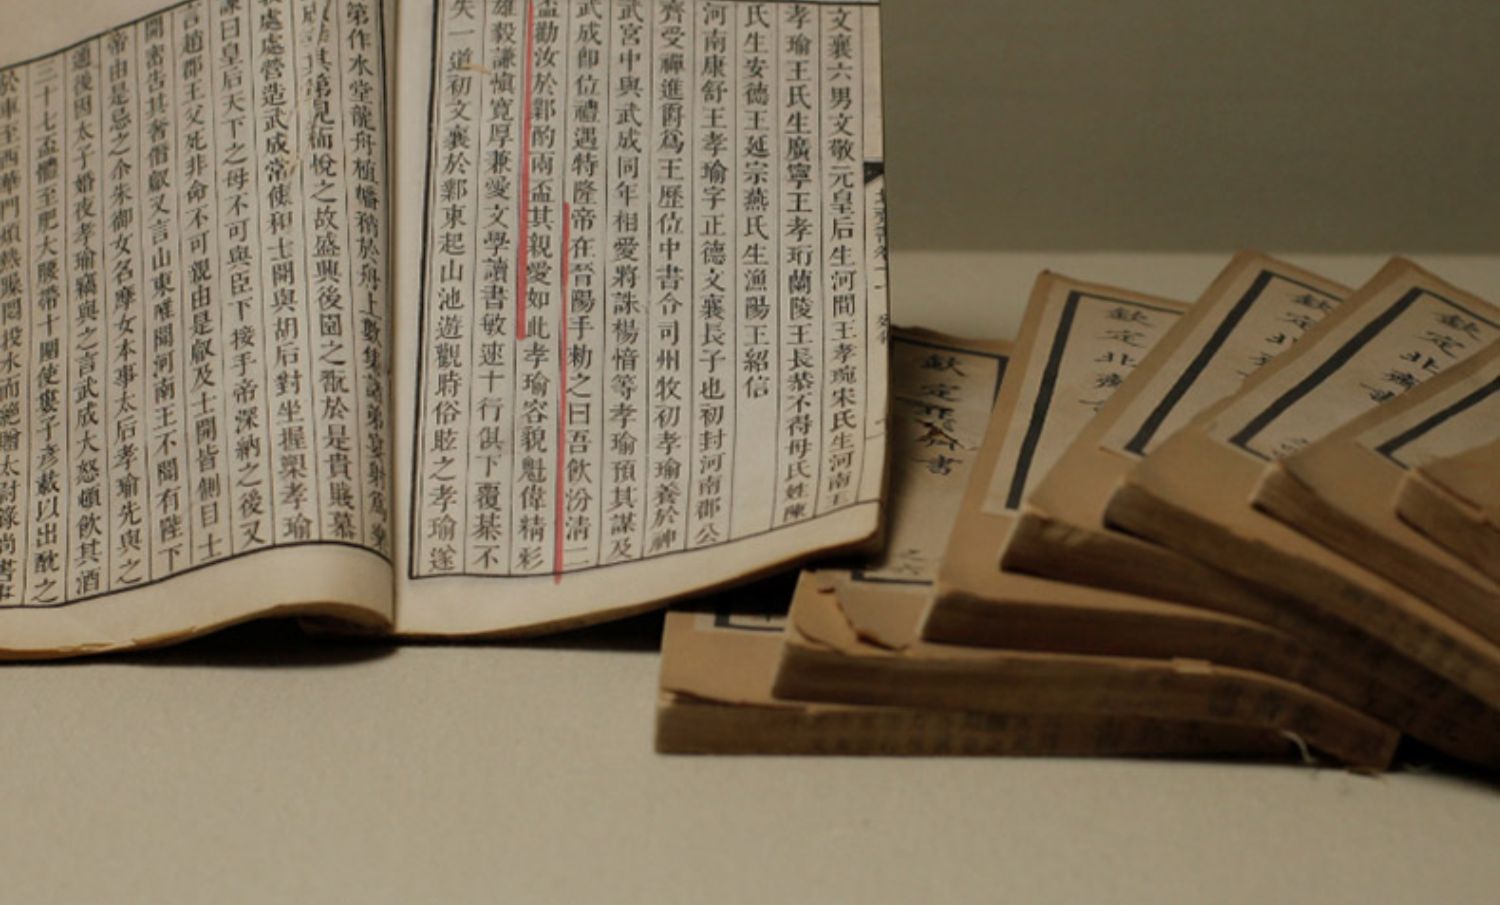 文襄六男文敬元皇后生河間王孝琬宋氏生河南王
孝瑜王氏生廣寧王孝珩蘭陵王長恭不得母氏姓陳
氏生安德王延宗燕氏生漁陽王紹信
河南康舒王孝瑜字正德文襄長子也初封河南郡公
齊受禪進爵爲王歷位中書令司州牧初孝瑜養於神
武宮中與武成同年相愛將誅楊愔等孝瑜預其謀及
武成卽位禮遇特隆帝在晉陽手勑之曰吾飲汾清二
盃勸汝於鄴酌兩盃其親愛如此孝瑜容貌魁偉精彩
雄毅謙愼寬厚兼愛文學讀書敏速十行俱下覆棊不
失一道初文襄於鄴東起山池遊觀時俗眩之孝瑜遂
第作水堂龍舟植幡矟於舟上數集諸弟宴射爲樂
武成幸其第見而悅之故盛興後園之翫於是貴賤慕
處處營造武成常使和士開與胡后對坐握槊孝瑜
諫曰皇后天下之母不可與臣下接手帝深納之後又
言趙郡王父死非命不可親由是叡及士開皆側目士
開密告其奢僭叡又言山東唯聞河南王不聞有陛下
帝由是忌之尒朱御女名摩女本事太后孝瑜先與之
通後因太子婚夜孝瑜竊與之言武成大怒頓飲其酒
三十七盃體至肥大腰帶十圍使婁子彥載以出酖之
於車至西華門煩熱躁悶投水而絕贈太尉錄尚書事
欽定北齊書
之六
欽定北齊書
欽定北齊
欽定北齊書
欽定